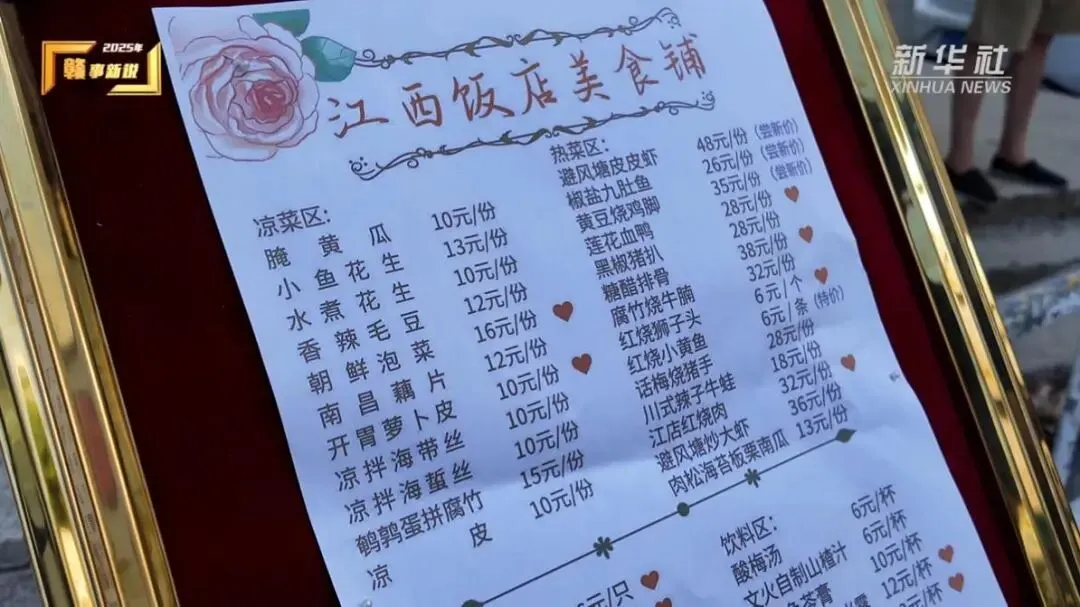 2025年
赣事新说
新华社
XINHUA NEWS
江西饭店美食铺
凉菜区:
腌黄瓜 10元/份
小鱼花生 13元/份
水煮花生 10元/份
香辣毛豆 12元/份
朝鲜泡菜 16元/份
南昌藕片 12元/份
开胃萝卜皮 10元/份
凉拌海带丝 10元/份
凉拌海蜇丝 10元/份
鹌鹑蛋拼腐竹 15元/份
凉皮 10元/份
元/只
热菜区:
避风塘皮皮虾 48元/份(尝新价)
椒盐九肚鱼 26元/份(尝新价)
黄豆烧鸡脚 35元/份(尝新价)
莲花血鸭 28元/份
黑椒猪扒 28元/份
糖醋排骨 38元/份
腐竹烧牛腩 32元/份
红烧狮子头 6元/个
红烧小黄鱼 6元/条(特价)
话梅烧猪手 28元/份
川式辣子牛蛙 18元/份
江店红烧肉 32元/份
避风塘炒大虾 36元/份
肉松海苔板栗南瓜 13元/份
饮料区:
酸梅汤 6元/杯
文火自制山楂汁 6元/杯
苓膏 10元/杯
露 12元/杯
元/杯